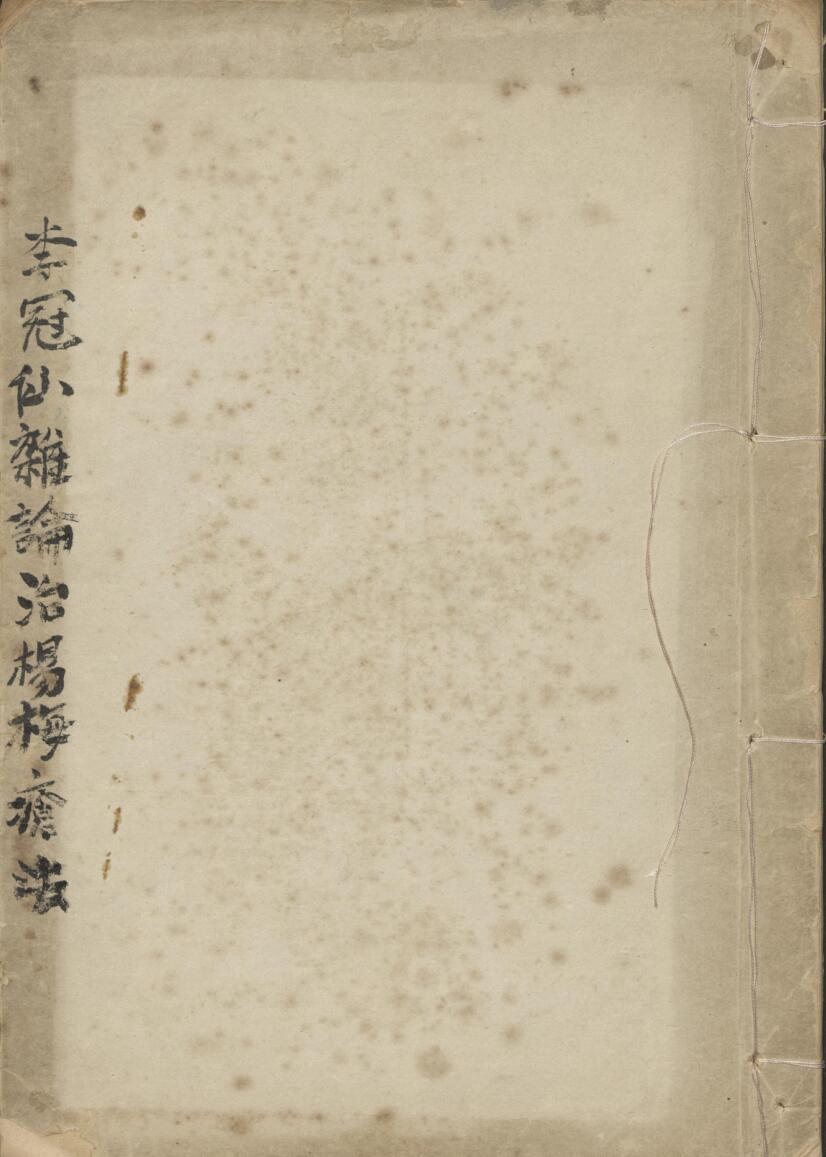 李冠仙雜論治楊梅瘡法